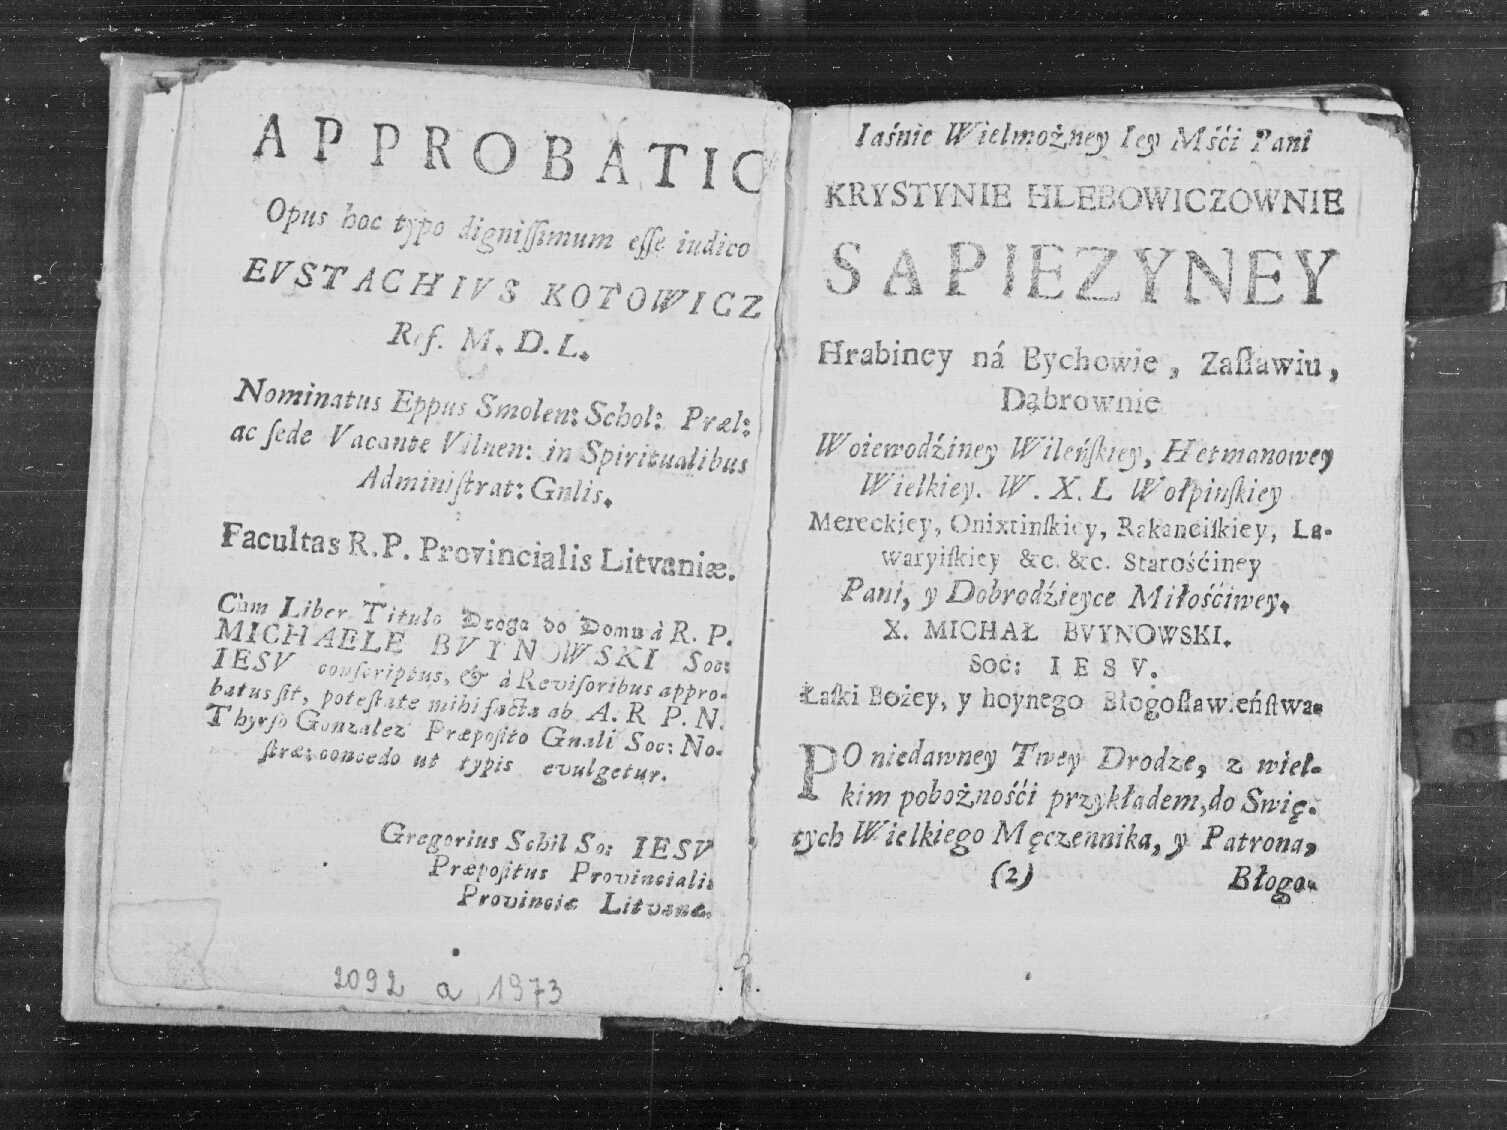 APPROBATIO
Opus hoc typo digniſſimum eſſe iudico
EVSTACHIVS KOTOWICZ
Ref. M. D. L.
Nominatus Eppus Smolen: Schol: Præl:
ac ſede Vacante Vilnen: in Spiritualibus
Adminiſtrat: Gnlis.
Facultas R. P. Provincialis Litvaniæ.
Cum Liber Titulo Droga do Domu à R. P.
MICHAELE BVYNOWSKI Soc:
IESV conſcriptus, & à Reviſoribus appro-
batus ſit, poteſtate mihi facta ab A. R P. N.
Thyrſo Gonzalez Præpoſito Gnali Soc: No-
ſtræ: concedo ut typis evulgetur.
Gregorius Schil So: IESV
Præpoſitus Provincialis
Provinciæ Litvanæ.
2092 a 1973
Iaśnie Wielmożney Iey Mśći Pani
KRYSTYNIE HLEBOWICZOWNIE
SAPIEZYNEY
Hrabiney ná Bychowie, Zaſławiu,
Dąbrownie
Woiewodźiney Wileńſkiey, Hetmanowey
Wielkiey. W. X. L Wołpinſkiey
Mereckiey, Onixtinſkiey, Rakanciſkiey, La-
waryiſkiey &c. &c. Starośćiney
Pani, y Dobrodźieyce Miłośćiwey.
X. MICHAŁ BVYNOWSKI.
Soc: IESV.
Łaſki Bożey, y hoynego Błogoſławieńſtwa.
PO niedawney Twey Drodze, z wiel-
kim pobożnośći przykładem, do Swię-
tych Wielkiego Męczennika, y Patrona,
(2) Błogo-